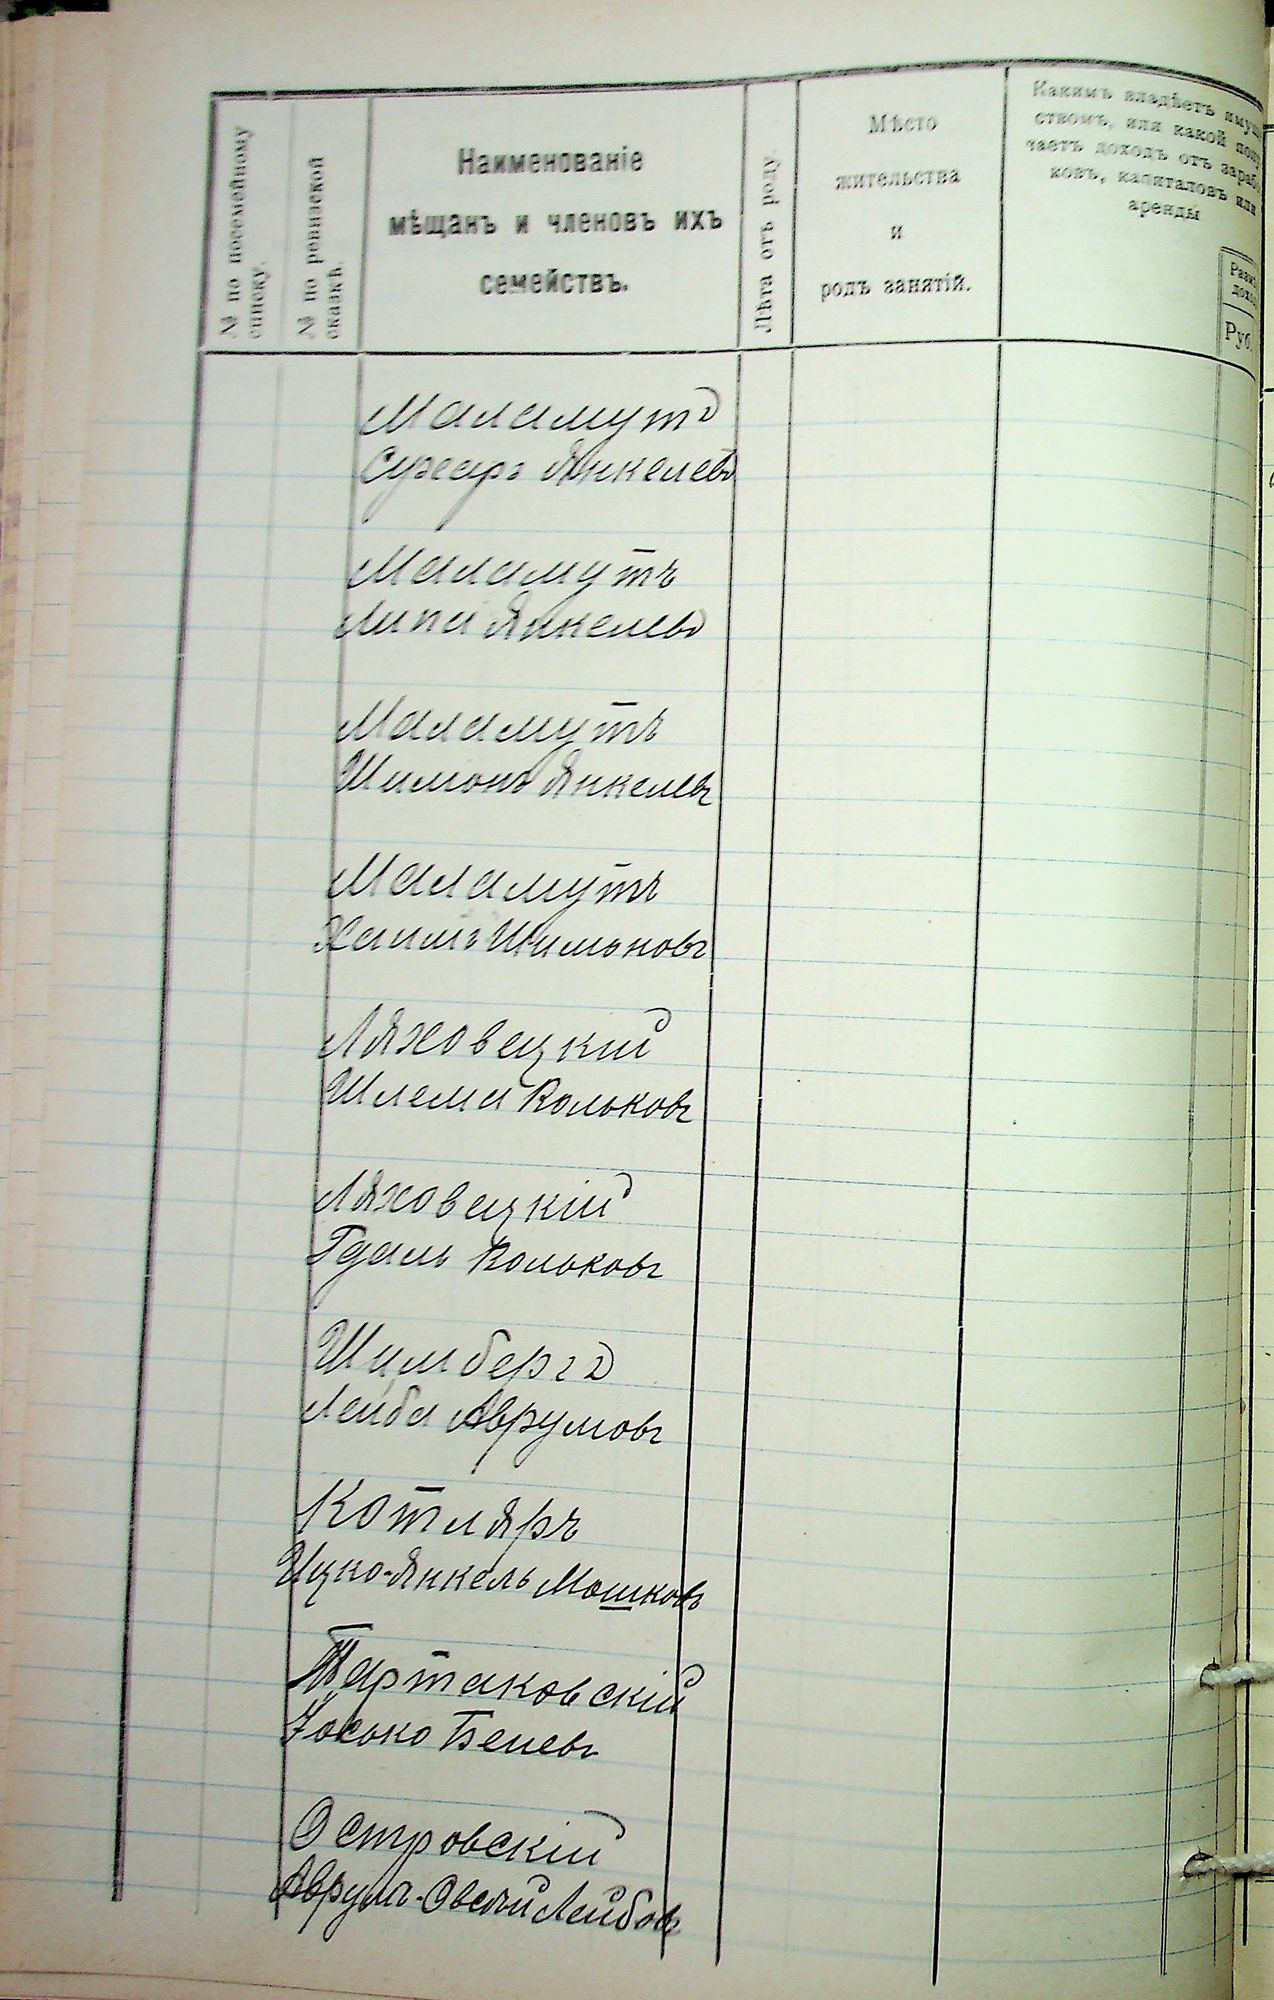 № по посемейному
списку.
№ по ревизской
сказкѣ.
Наименованіе
мѣщанъ и членовъ ихъ
семействъ.
Лѣта отъ роду.
Мѣсто
жительства
и
родъ занятій.
Какимъ владѣетъ имущ
ствомъ, или какой полу
чаетъ доходъ отъ зараб
ковъ, капиталовъ или
аренды
Разм
дохо
Руб.
Маламутъ
Сухаръ Янкелевъ
Маламутъ
Липа Янкелевъ
Маламутъ
Шимонъ Янкелевъ
Маламутъ
Хаимъ Шимоновъ
Ляховецкій
Шлема Вольковъ
Ляховецкій
Гдаль Вольковъ
Шимбергъ
Лейба Аврумовъ
Котляръ
Ицко-Янкель Мошковъ
Тартаковскій
Іосько Беневъ
Островскій
Аврумъ-Овсѣй Лейбовъ